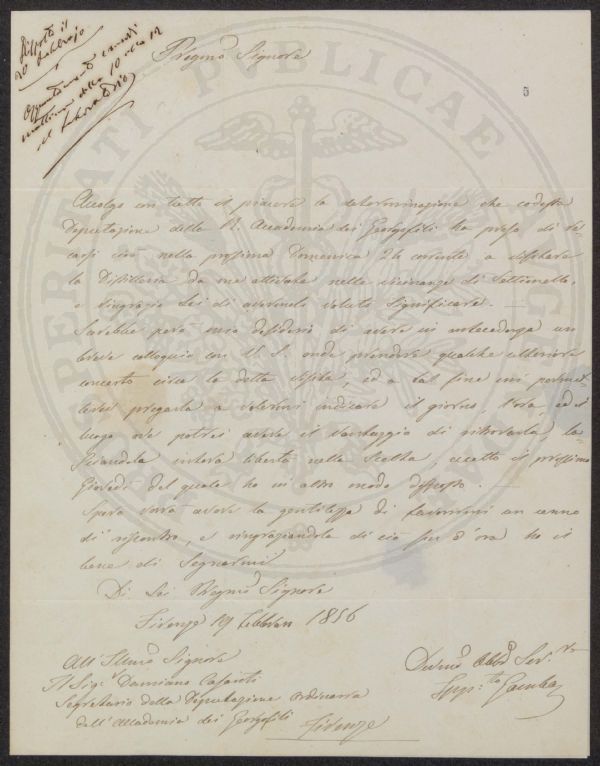 Risposto il
20 Febbrajo
mattina dalle 10 alle 12
Pregmo Signore
5
PROSPERITATI PVBLICAE AVGENDAE
Accolgo con tutto il piacere la determinazione che codesta
Deputazione della R. Accademia dei Georgofili ha preso di re-
carsi cioè nella prossima Domenica 24 corrente a visitare
la Distilleria da me attivata nelle vicinanze di Settimello,
e ringrazio Lei di avermelo voluto significare. —
Sarebbe però mio desiderio di avere in antecedenza un
breve colloquio con V. S. onde prendere qualche ulteriore
concerto circa la detta visita, ed a tal fine mi permet-
terei pregarla a volermi indicare il giorno, l'ora, ed il
luogo ove potrei avere il vantaggio di ritrovarla, la-
sciandole intera libertà nella scelta, eccetto il prossimo
Giovedì del quale ho in altro modo disposto. —
Spero vorrà avere la gentilezza di favorirmi un cenno
di riscontro, e ringraziandola di ciò fin d'ora ho il
bene di segnarmi
Di Lei Pregmo Signore
Firenze 19 Febbraio 1856
All' Illmo Signore
Il Sigr Damiano Casanti
Segretario della Deputazione Ordinaria
dell'Accademia dei Georgofili
Firenze
Devmo Obbmo Servre
Gamba